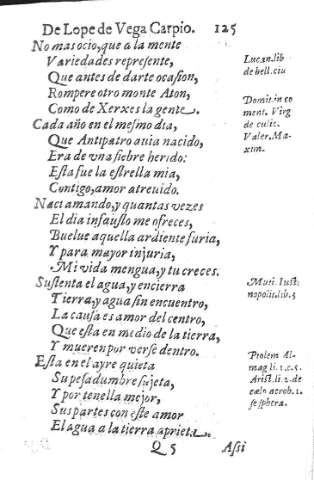 De Lope de Vega Carpio. 125
No mas ocio, que a la mente
Variedades represente,
Que antes de darte ocasion,
Rompere otro monte Aton,
Como de Xerxes la gente.
Cada año en el mesmo dia,
Que Antipatro auia nacido,
Era de vna fiebre herido:
Esta fue la estrella mia,
Contigo, amor atreuido.
Naci amando, y quantas vezes
El dia infausto me ofreces,
Buelue aquella ardiente furia,
Y para mayor injuria,
Mi vida mengua, y tu creces.
Sustenta el agua, y encierra
Tierra, y agua sin encuentro,
La causa es amor del centro,
Que esta en medio de la tierra,
Y mueren por verse dentro.
Esta en el ayre quieta
Su pesadumbre sujeta,
Y por tenella mejor,
Sus partes con este amor
El agua a la tierra aprieta.
Q 5 Assi
Luc. in lib
de bell. ciu
Domit. in co
ment. Virg
de culic.
Valer. Ma-
xim.
nopolit. lib. 5
Ptolem Al-
mag li. 1. c. 5.
Arist. li. 2. de
cælo acrob. 1.
se sphera.